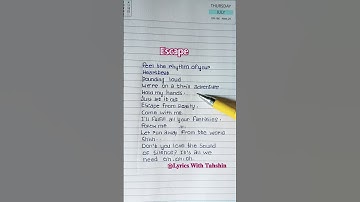 THURSDAY
JULY
Escape
Feel the rhythm of your
Heartbeat
Pounding loud
We're on a thrill Adventure
Hold my hands
Just let it go
Escape from Reality
Come with me
I'll fulfill all your fantasies
Follow me
Let run away from the world
Don't you love the sound
of silence? It's all we
need oh oh oh
@Lyrics With Tahshin